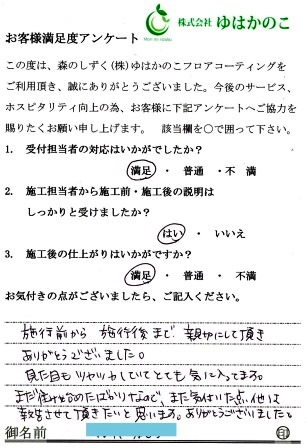 株式会社 ゆはかのこ
お客様満足度アンケート
この度は、森のしずく(株)ゆはかのこフロアコーティングを
ご利用頂き、誠にありがとうございました。今後のサービス、
ホスピタリティ向上の為、お客様に下記アンケートへご協力を
賜りたくお願い申し上げます。 該当欄を○で囲って下さい。
1. 受付担当者の対応はいかがでしたか?
満足 ・ 普通 ・不 満
2. 施工担当者から施工前・施工後の説明は
しっかりと受けましたか?
はい ・ いいえ
3. 施工後の仕上がりはいかがですか?
満足 ・ 普通 ・ 不満
お気付きの点がございましたら、ご記入ください。
施行前から 施行後まで 親切にして頂き
ありがとうございました。
見た目もツヤツヤしていてとても気に入ってます。
まだ住みはじめたばかりなので、まだ気付いた点、他は
報告させて頂きたいと思います。ありがとうございました。
御名前 ㊞